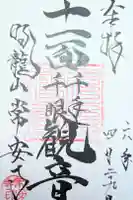 奉拝
六年
四月二十九日
十一面
千手
千眼
観音
龍山
常安寺